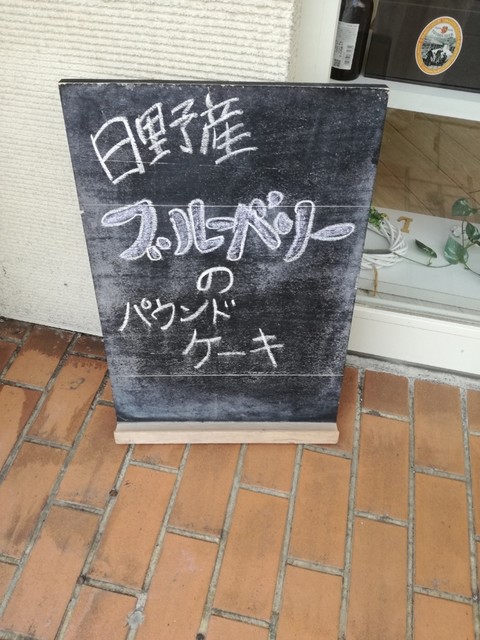 日野産
ブルーベリー
の
パウンド
ケーキ